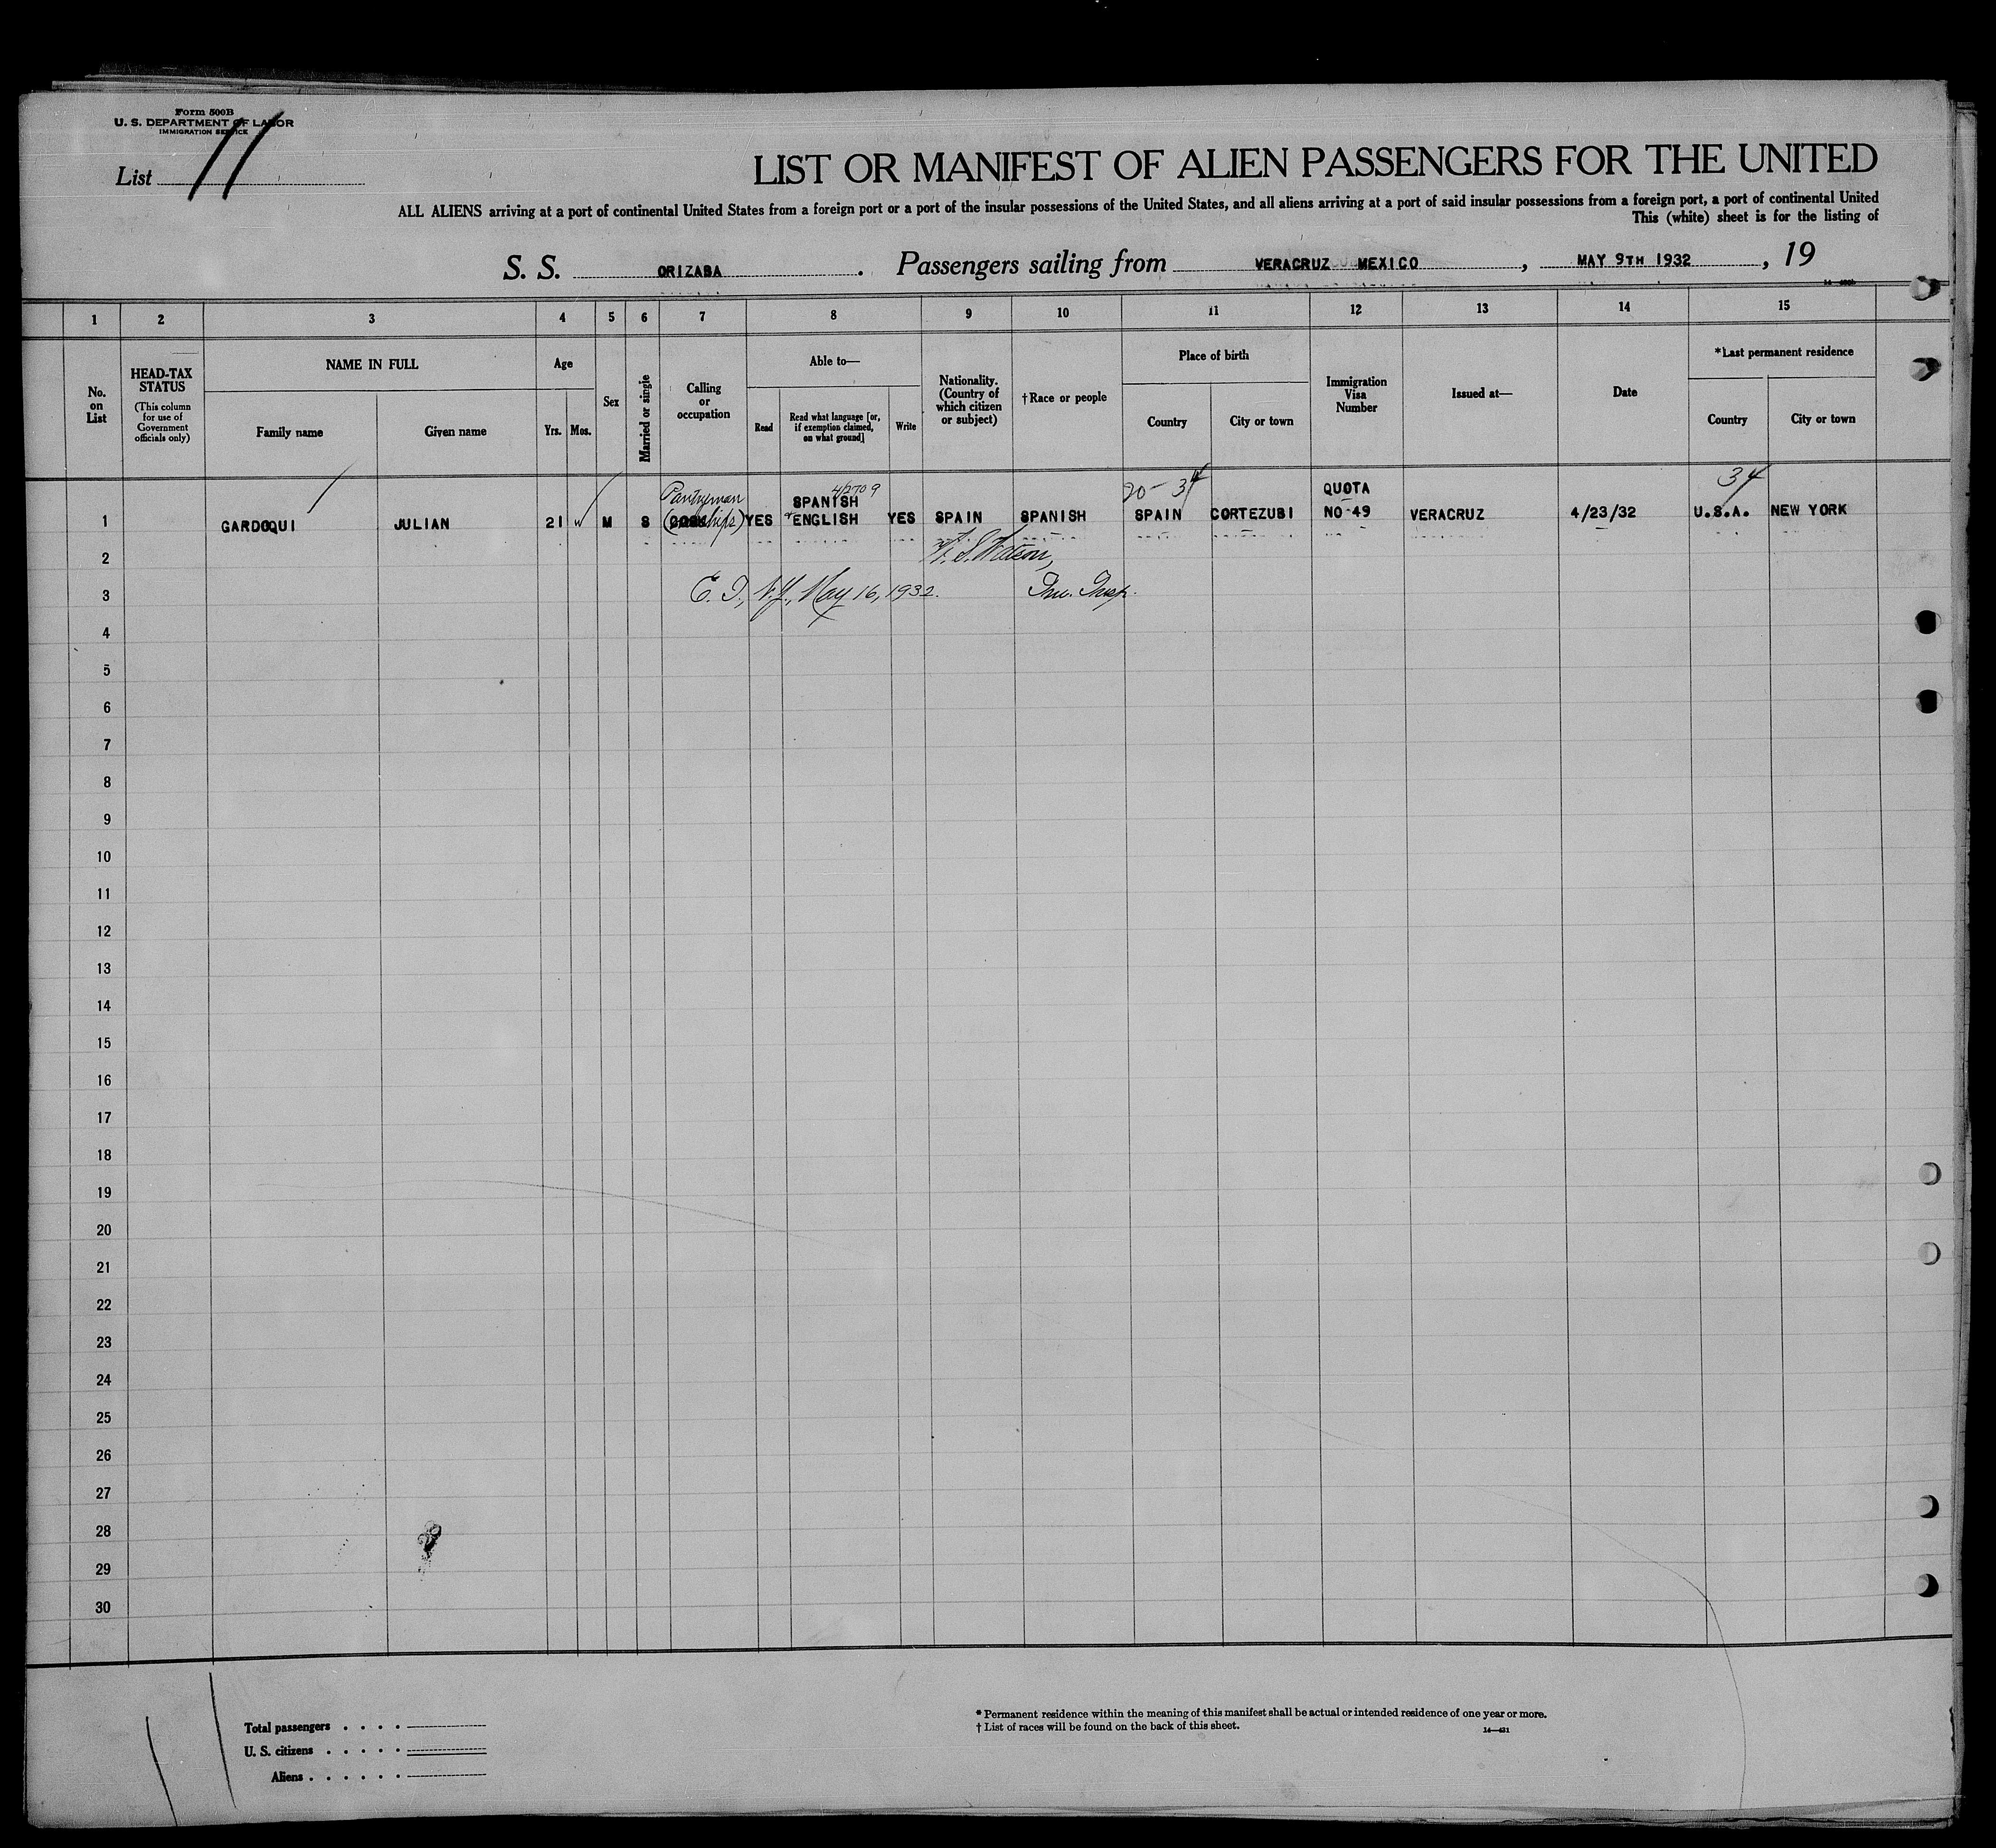 Form 500B
U. S. DEPARTMENT OF LABOR
IMMIGRATION SERVICE
List 11
LIST OR MANIFEST OF ALIEN PASSENGERS FOR THE UNITED
ALL ALIENS arriving at a port of continental United States from a foreign port or a port of the insular possessions of the United States, and all aliens arriving at a port of said insular possessions from a foreign port, a port of continental United
This (white) sheet is for the listing of
S. S. ORIZABA . Passengers sailing from VERACRUZ MEXICO , MAY 9TH 1932 , 19
1 2 3 4 5 6 7 8 9 10 11 12 13 14 15
No. on List
HEAD-TAX STATUS
(This column for use of Government officials only)
NAME IN FULL
Family name
Given name
Age
Yrs. Mos.
Sex
Married or single
Calling or occupation
Able to—
Read
Read what language [or, if exemption claimed, on what ground]
Write
Nationality. (Country of which citizen or subject)
†Race or people
Place of birth
Country
City or town
Immigration Visa Number
Issued at—
Date
*Last permanent residence
Country
City or town
Pantryman 4/2709 20- 34 QUOTA 34
SPANISH
1 GARDOQUI JULIAN 21 M S COOK (ships) YES ENGLISH YES SPAIN SPANISH SPAIN CORTEZUBI NO-49 VERACRUZ 4/23/32 U.S.A. NEW YORK
2
3 E. I., N.Y., May 16, 1932. Imm. Insp.
4
5
6
7
8
9
10
11
12
13
14
15
16
17
18
19
20
21
22
23
24
25
26
27
28
29
30
Total passengers . . . .
U. S. citizens . . . . .
Aliens . . . . . .
* Permanent residence within the meaning of this manifest shall be actual or intended residence of one year or more.
† List of races will be found on the back of this sheet.